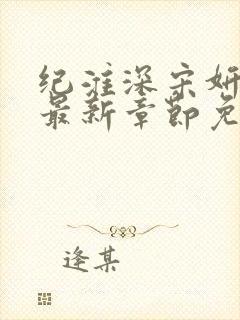 纪淮深宋妍
最新章节免
逢某